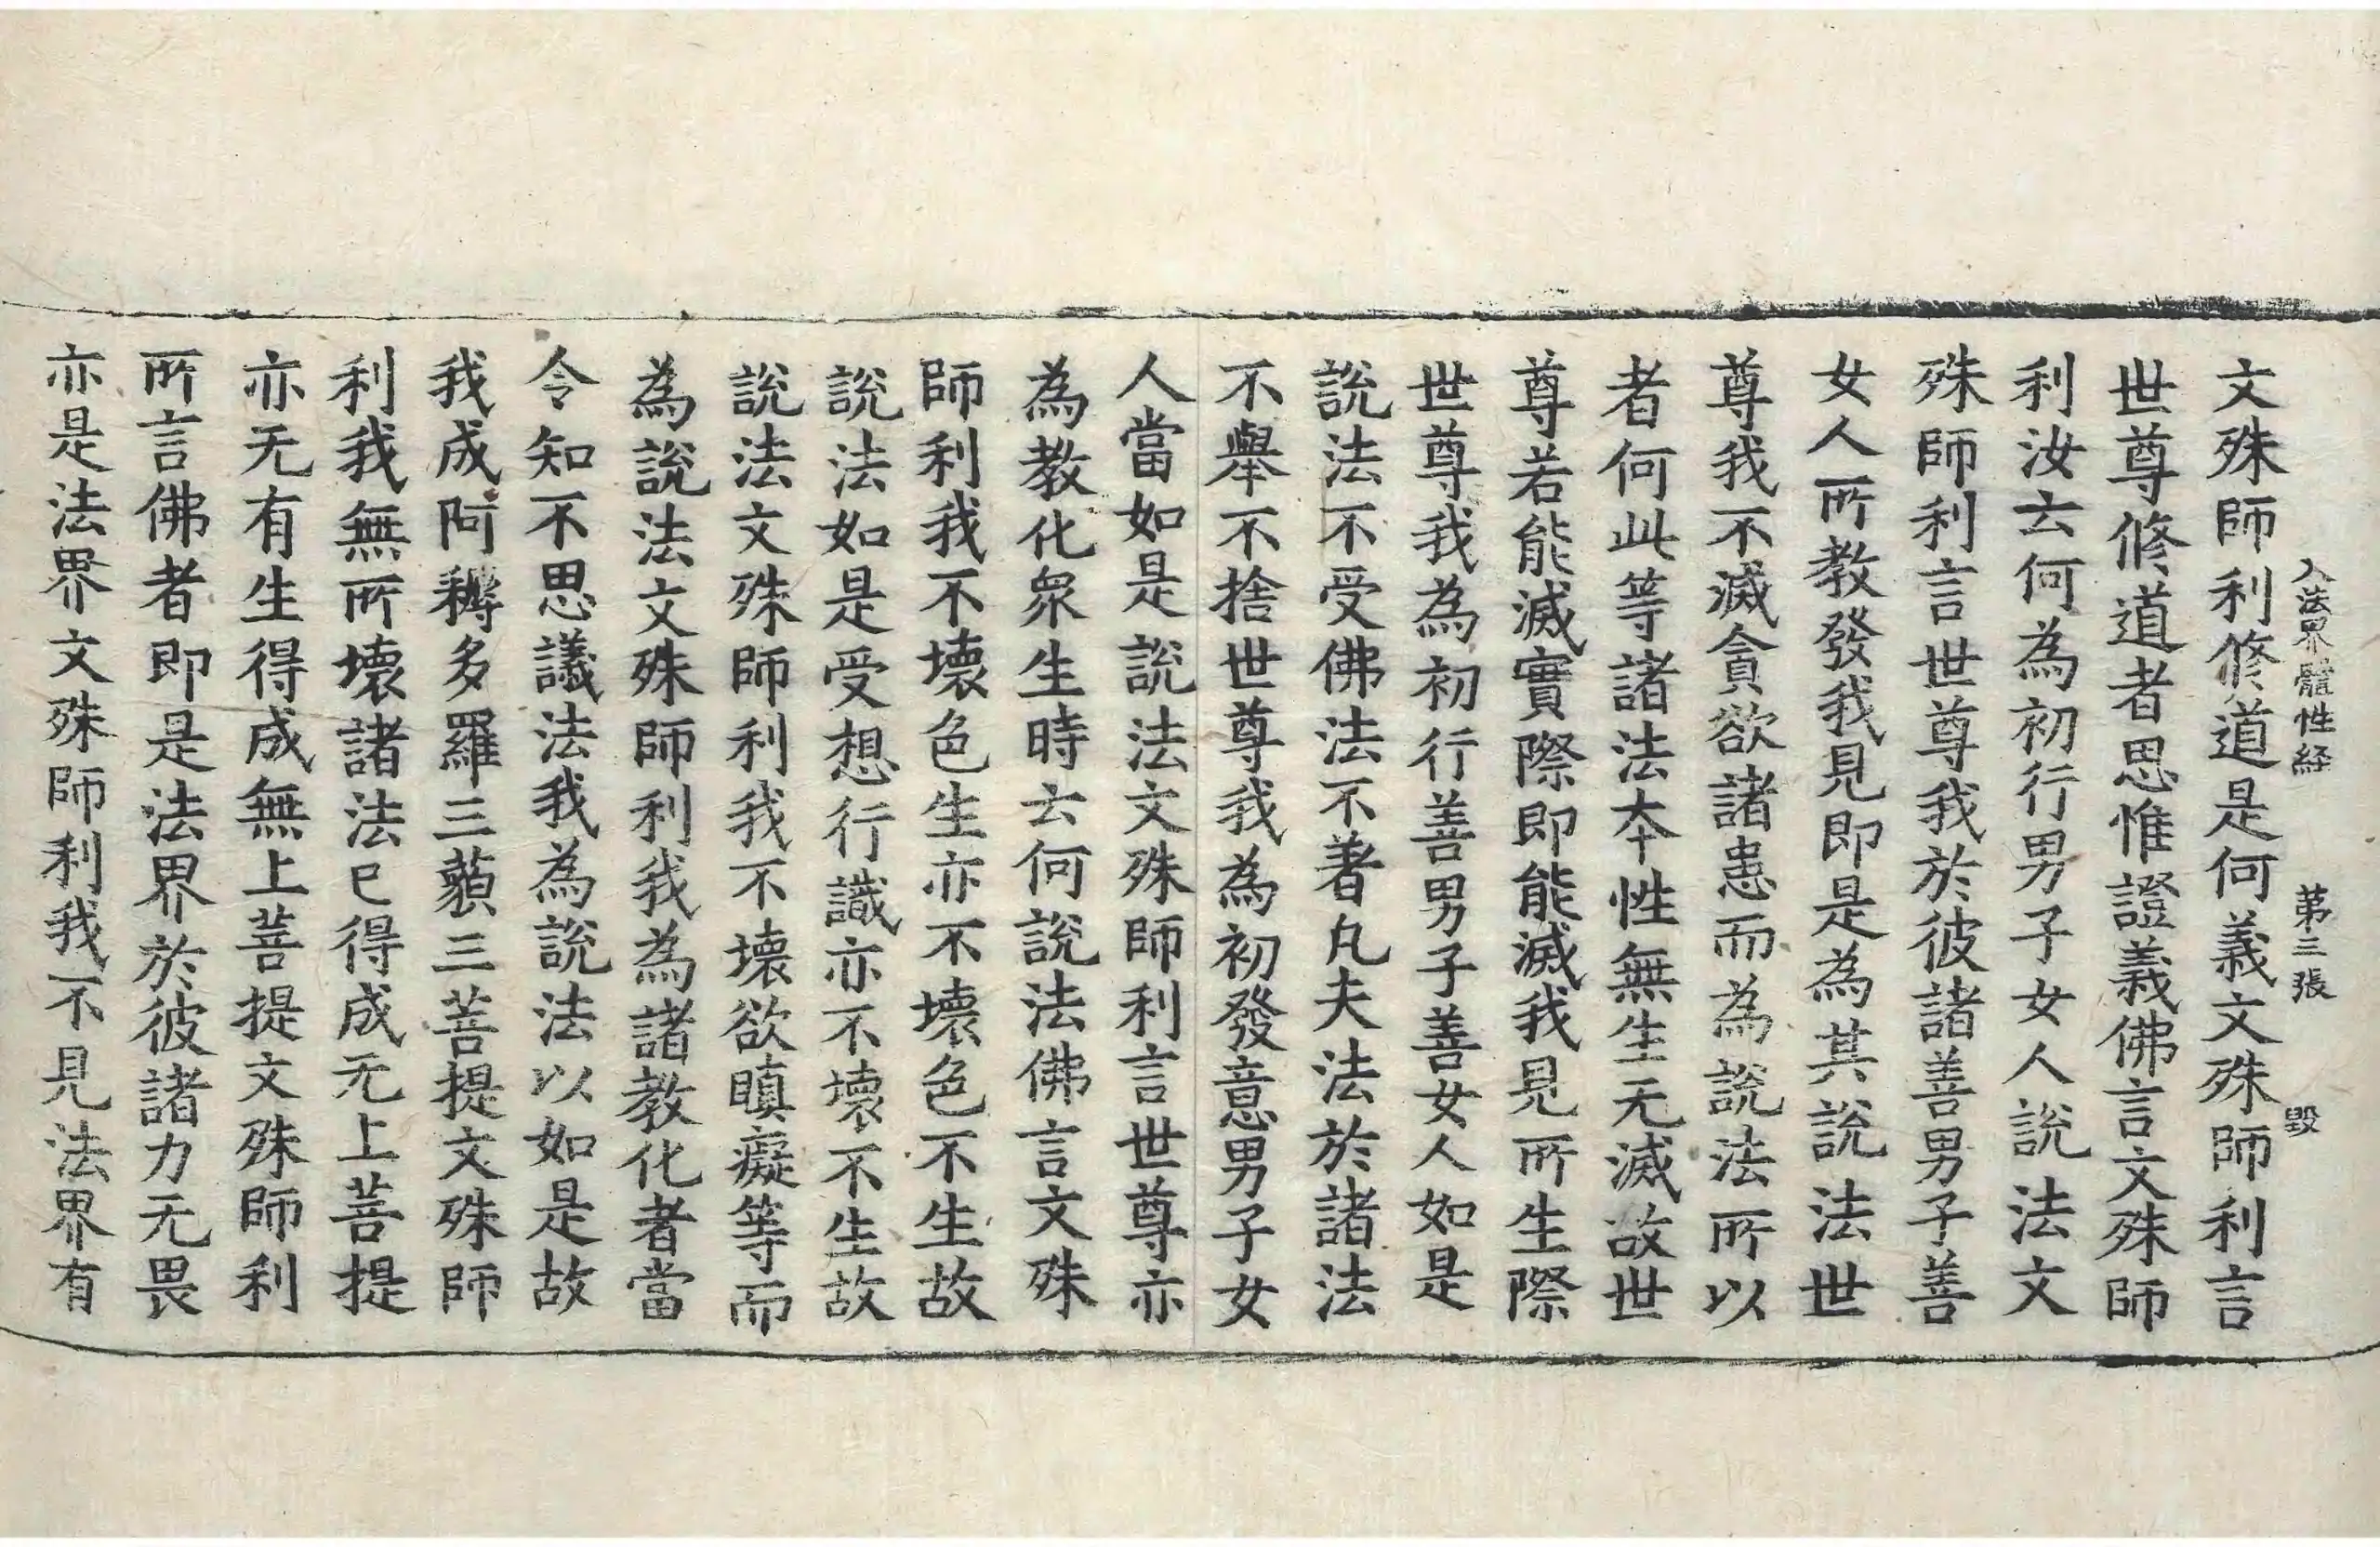 入法界體性経 第三張 毀
文殊師利修道是何義文殊師利言
世尊修道者思惟證義佛言文殊師
利汝云何為初行男子女人說法文
殊師利言世尊我於彼諸善男子善
女人所教發我見即是為其說法世
尊我不滅貪欲諸患而為說法所以
者何此等諸法本性無生无滅故世
尊若能滅實際即能滅我見所生際
世尊我為初行善男子善女人如是
說法不受佛法不著凡夫法於諸法
不舉不捨世尊我為初發意男子女
人當如是說法文殊師利言世尊亦
為教化衆生時云何說法佛言文殊
師利我不壞色生亦不壞色不生故
說法如是受想行識亦不壞不生故
說法文殊師利我不壞欲瞋癡等而
為說法文殊師利我為諸教化者當
令知不思議法我為說法以如是故
我成阿耨多羅三藐三菩提文殊師
利我無所壞諸法已得成无上菩提
亦无有生得成無上菩提文殊師利
所言佛者即是法界於彼諸力无畏
亦是法界文殊師利我不見法界有